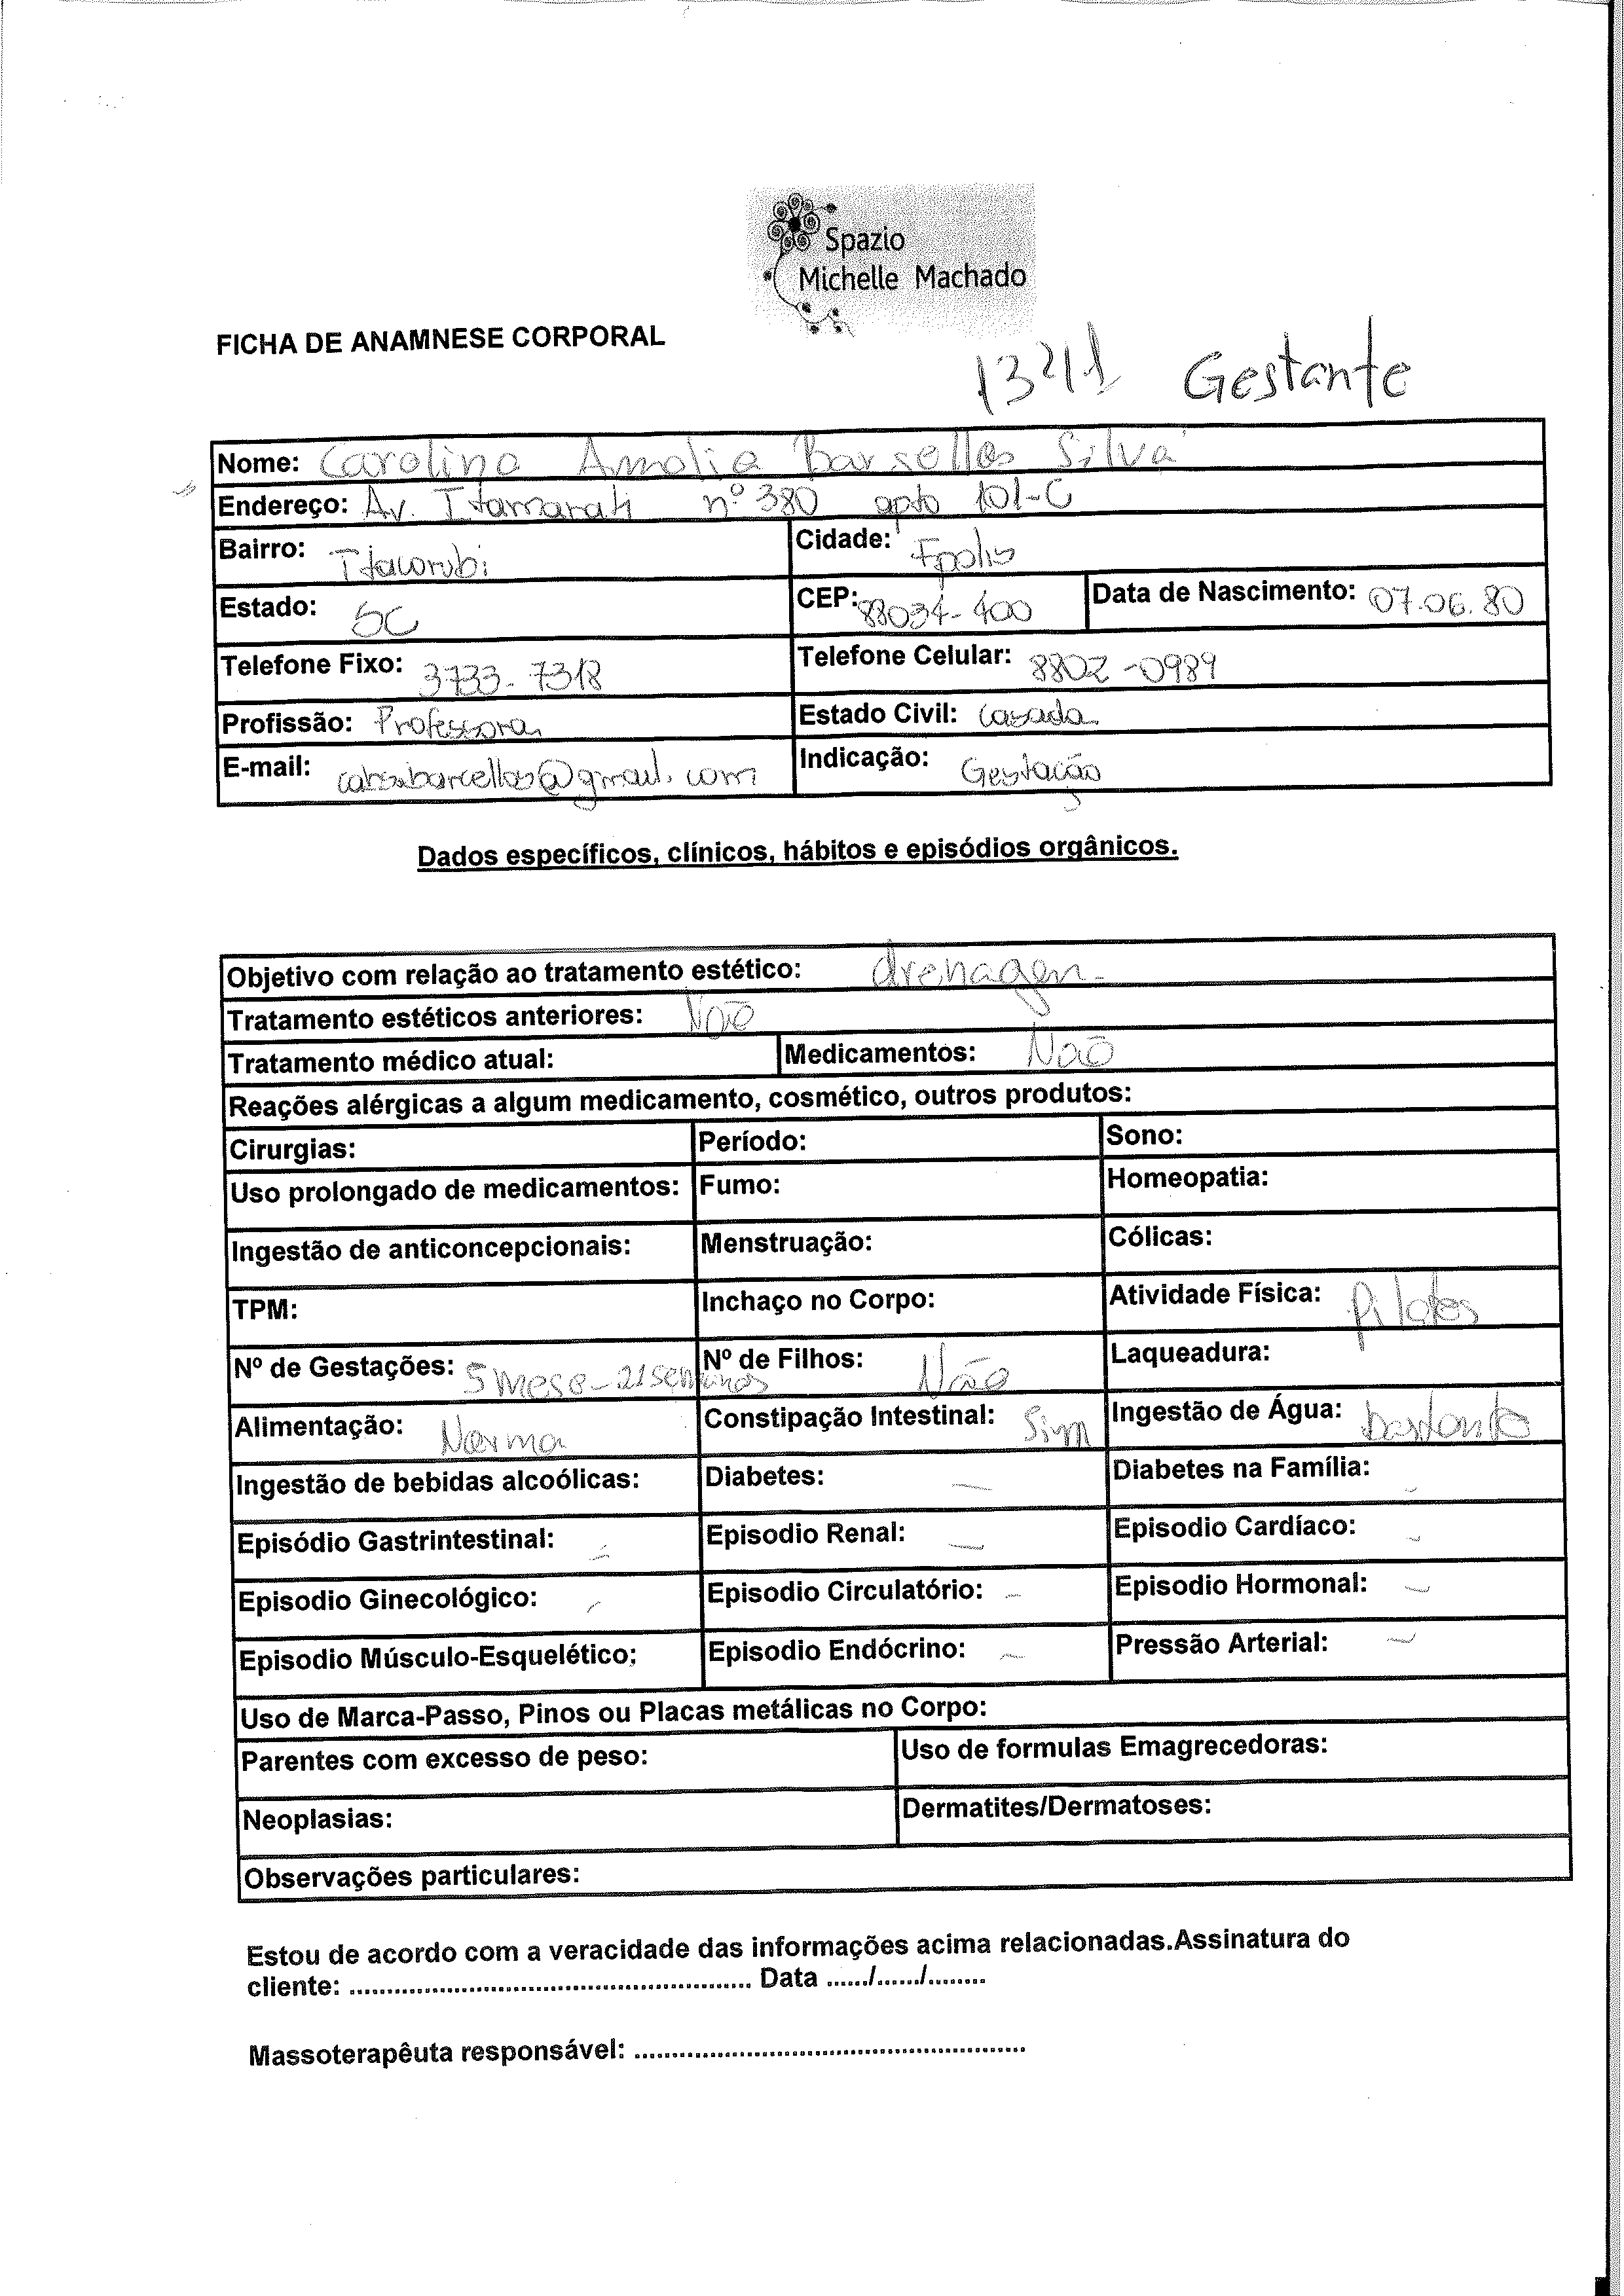 Spazio
Michelle Machado
FICHA DE ANAMNESE CORPORAL
Gestante
Nome: Carolina Amalia Barsellos Silva
Endereço: Av. Itamarati nº 380 apto 101-C
Bairro: Itacorubi Cidade: Fpolis
Estado: SC CEP: 88034-400 Data de Nascimento: 07.06.80
Telefone Fixo: 3733-7318 Telefone Celular: 8802-0989
Profissão: Professora Estado Civil: Casada
E-mail: Indicação: Gestação
Dados específicos, clínicos, hábitos e episódios orgânicos.
Objetivo com relação ao tratamento estético: drenagem-
Tratamento estéticos anteriores: Não
Tratamento médico atual: Medicamentos: Não
Reações alérgicas a algum medicamento, cosmético, outros produtos:
Cirurgias: Período: Sono:
Uso prolongado de medicamentos: Fumo: Homeopatia:
Ingestão de anticoncepcionais: Menstruação: Cólicas:
TPM: Inchaço no Corpo: Atividade Física: Pilates
Nº de Gestações: 5 meses-21semanas Nº de Filhos: Não Laqueadura:
Alimentação: Norma Constipação Intestinal: Sim Ingestão de Água: bastante
Ingestão de bebidas alcoólicas: Diabetes: - Diabetes na Família: -
Episódio Gastrintestinal: - Episodio Renal: - Episodio Cardíaco: -
Episodio Ginecológico: - Episodio Circulatório: - Episodio Hormonal: -
Episodio Músculo-Esquelético: Episodio Endócrino: - Pressão Arterial: -
Uso de Marca-Passo, Pinos ou Placas metálicas no Corpo:
Parentes com excesso de peso: Uso de formulas Emagrecedoras:
Neoplasias: Dermatites/Dermatoses:
Observações particulares:
Estou de acordo com a veracidade das informações acima relacionadas.Assinatura do
cliente: ...................................................... Data ....../....../........
Massoterapêuta responsável: .....................................................